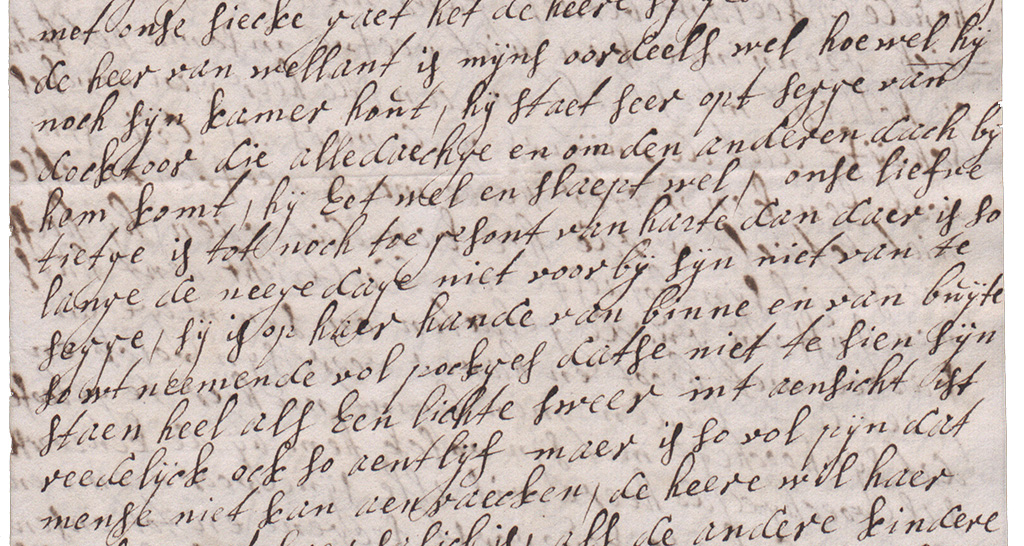 met onse siecke gaet het de heere sy
de heer van wellant is mijns oordeels wel hoewel hij
noch sijn kamer hout, hij staet seer opt segge van
docktoor die alledaechge en om den anderen dach bij
hem komt, hij Eet wel en slaept wel, onse liefve
tietge is tot noch toe gesont van harte dan daer is so
lange de neege dage niet voorbij sijn niet van te
segge, sij is op haer hande van binne en van buijte
so wt neemende vol pockges datse niet te sien sijn
staen heel als Een lichte sweer int aensicht ist
reedelijck ock so aentlijf maer is so vol pijn dat
mense niet kan aenraecken, de heere wil haer
is, als de andere kindere